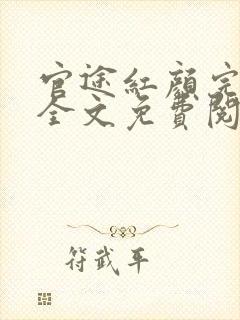 官途紅顔完
全文免費閱
符武平